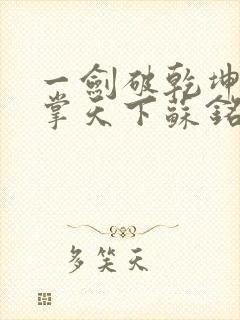 一劍破乾坤
掌天下蘇銘
多笑天